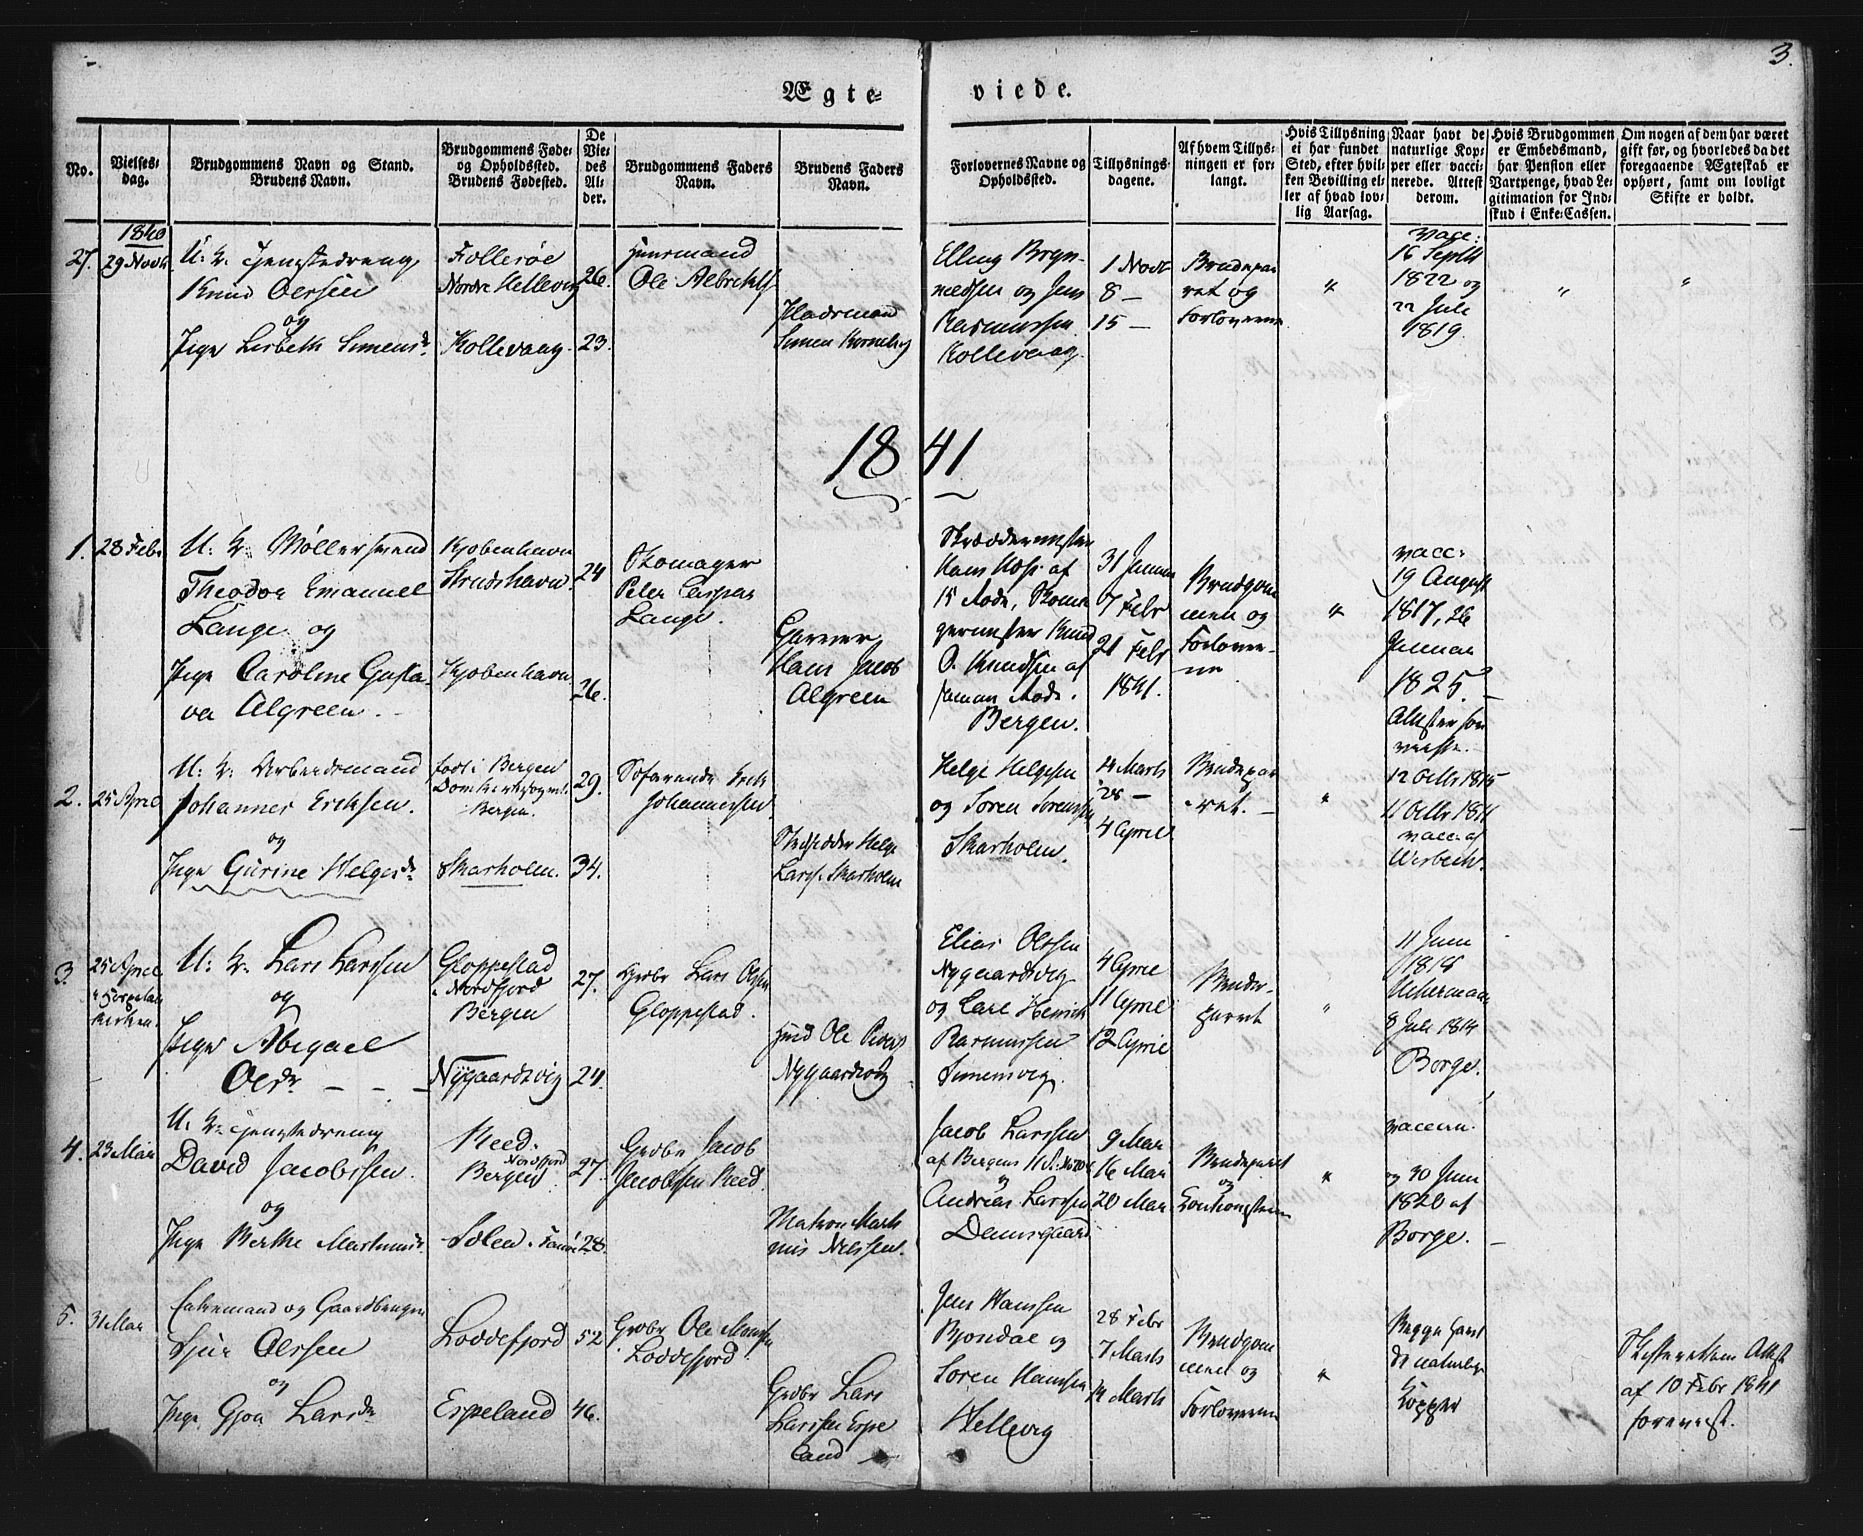 3.
Ægte- viede.
No.
Vielses-
dag.
Brudgommens Navn og Stand.
Brudens Navn.
Brudgommens Føde-
og Opholdssted.
Brudens Fødested.
De
Vie-
des
Al-
der.
Brudgommens Faders
Navn.
Brudens Faders
Navn.
Forlovernes Navne og
Opholdssted.
Tillysnings-
dagene.
Af hvem Tillys-
ningen er for-
langt.
Hvis Tillysning
ei har fundet
Sted, efter hvil-
ken Bevilling el-
ler af hvad lov-
lig Aarsag.
Naar havt de
naturlige Kop-
per eller vacci-
nerede. Attest
derom.
Hvis Brudgommen
er Embedsmand,
har Pension eller
Vartpenge, hvad Le-
gitimation for Ind-
skud i Enke-Cassen.
Om nogen af dem har været
gift før, og hvorledes da det
foregaaende Ægteskab er
ophørt, samt om lovligt
Skifte er holdt.
1840
27. 29 Novbr
U: K: Tjenestedreng
Knud Olsen
og
Pige Lisbeth Simensdr
Follesøe
Nordre Hellevig
Kollevaag
26.
23.
Huusmand
Ole Albrektsen
Simen
Elling Bryn-
og Jens
Rasmussen
Kollevaag
1 Novbr
8 —
15 —
Brudepar
ret og
Forloverne
"
vacc:
16 Septbr
1822 og
22 Juli
1819.
"
"
1841
1. 28 Febr
U: K: Møllersvend
Theodor Emanuel
Lange og
Pige Caroline Gusta-
va Algreen.
Kjøbenhavn
Strudshavn
Kjøbenhavn
24
26.
Skomager
Peter Caspar
Lange.
Garver
Hans Jacob
Algreen
Skræddermester
Hans af
15 Rode, Skoma
germester Knud
O. Knudsen af
samme Rode.
Bergen.
31 Januar
7 Febr
21 Febr
1841.
Brudgom
men og
Forlover-
ne
"
vacc:
19 August
1817, 26
Januar
1825. —
Attester fore
viiste.
2. 25 April
U: K: Arbeidsmand
Johannes Eriksen.
og
Pige Gurine Helgesdr
født i Bergen
Domkirkesogn
Bergen.
Skarholm.
29.
34.
Søfarende Erik
Johannessen
Helge
Larss. Skarholm
Helge Helgesen
og Søren Sørensen
Skarholm.
14 Marts
28 —
4 April
Brudepar
ret. —
"
12 Octbr 1815
11 Octbr 1811
vacc: af
3. 25 April
U: K: Lars Larssen
og
Pige Abigael
Olsdr — — —
Gloppestad
i Nordfjord
Bergen
Nygaardsvig
27.
24.
Grdbr Lars Olsen
Gloppestad.
Hmd Ole
Nygaardsvig
Elias Olssen
Nygaardsvig
og Carl Henrich
Rasmussen
Simensvig.
4 April
11 April
12 April
Brude-
parret
"
11 Juni
1818
8 Juli 1814
Borge.
4. 23 Mai
U: K: Tjenestedreng
David Jacobssen.
og
Pige Berthe Martinusdr
Reed.
Nordfjord
Bergen
27.
28.
Grdbr Jacob
Jacobsen Reed.
Matros Marti
nus Nielsen.
Jacob Larssen
af Bergens
og
Andreas Larssen
Damsgaard
9 Mai
16 Mai
20 Mai
Brudeparret
og
"
vaccin.
og 30 Juni
1820 af
Borge. —
5. 31 Mai
Enkemand og Gaardbruger
Sjur Olssen
og
Pige Gjoa Larsdr
Loddefjord
Espeland
52
46.
Grdbr Ole Monssen
Loddefjord
Grdbr Lars
Larssen Espe
land
Jens Hanssen
Bjøndal og
Søren Hanssen
Hellevig
28 Febr
7 Marts
14 Marts
Brudgom
men og
Forloverne
"
Begge havt
de naturlige
Kopper
Skifterettens Attest
af 10 Febr 1841
foreviist.